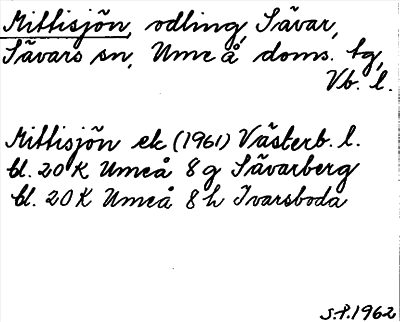 Mittisjön, odling, Sävar,
Sävars sn, Umeå doms. tg,
Vb. l.
Mittisjön ek (1961) Västerb. l.
bl. 20 K Umeå 8 g Sävarberg
bl. 20 K Umeå 8 h Ivarsboda
S.P. 1962